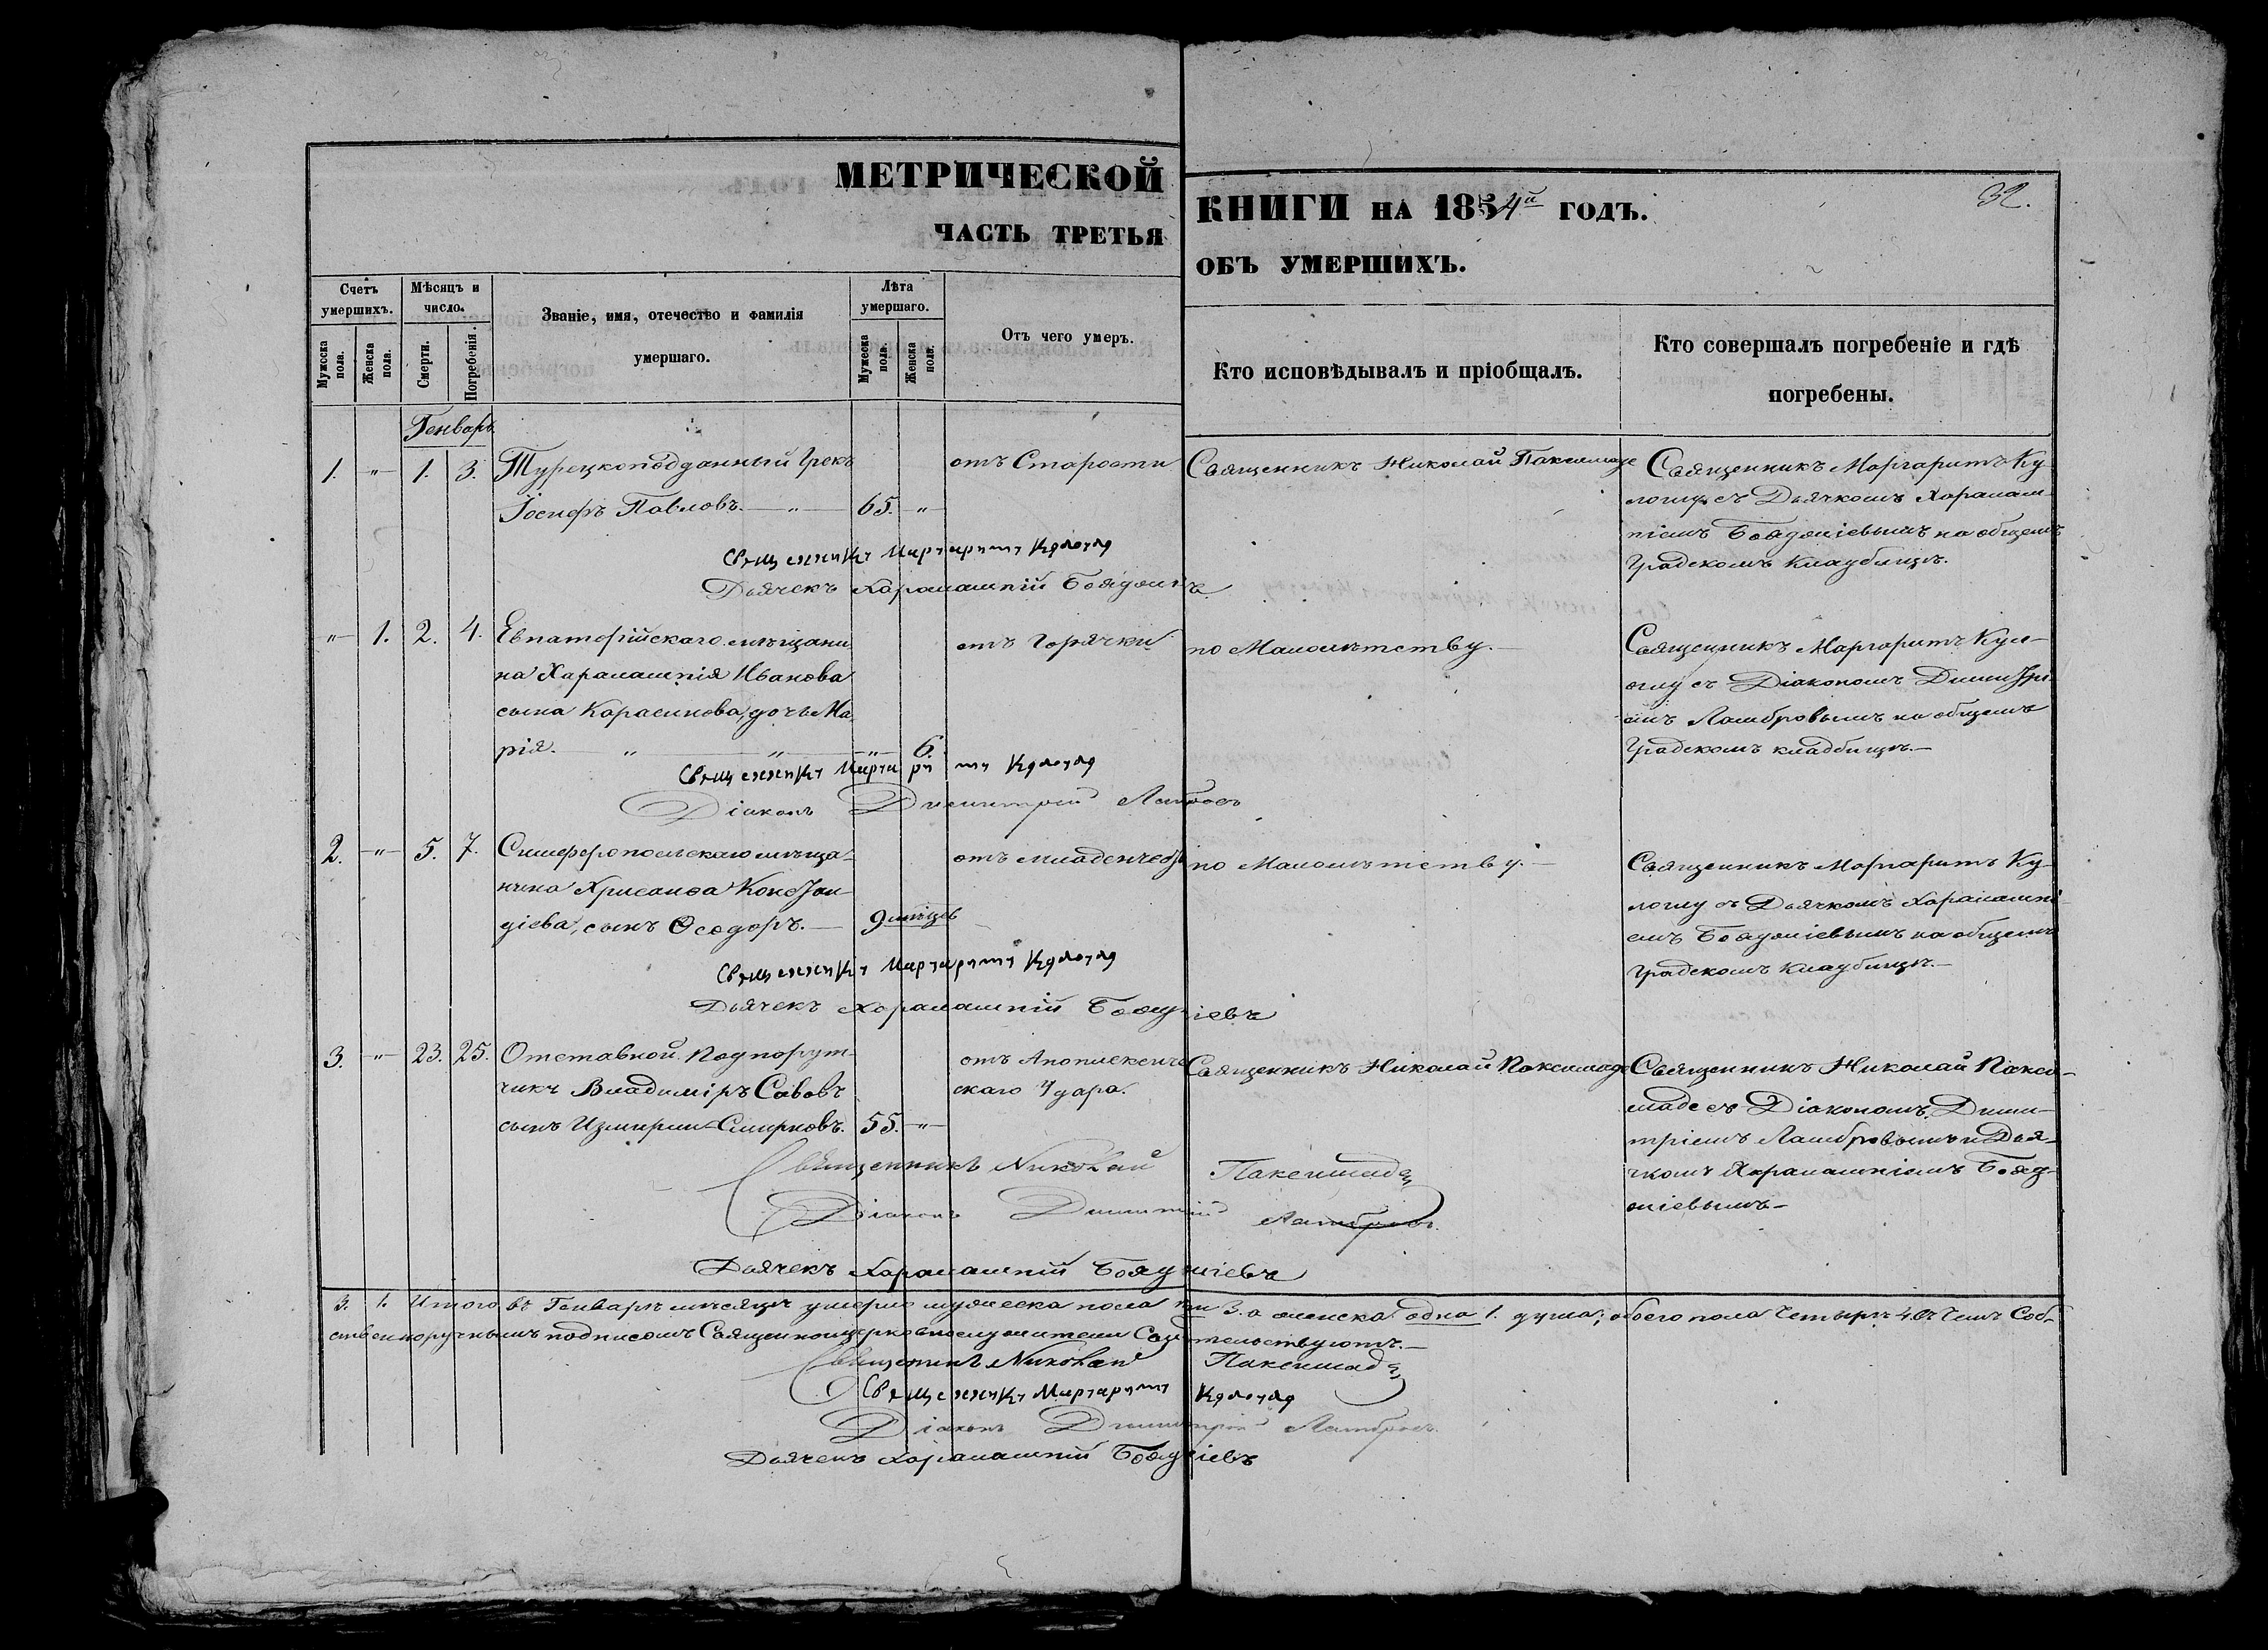 МЕТРИЧЕСКОЙ
ЧАСТЬ ТРЕТЬЯ
КНИГИ НА 1854й ГОДЪ.
32.
ОБЪ УМЕРШИХЪ.
Счетъ умершихъ.
Мужеска пола.
Женска пола.
Мѣсяцъ и число.
Смерти.
Погребенія.
Званіе, имя, отечество и фамилія
умершаго.
Лѣта умершаго.
Мужеска пола.
Женска пола.
Отъ чего умеръ.
Кто исповѣдывалъ и пріобщалъ.
Кто совершалъ погребеніе и гдѣ
погребены.
Генварь.
1. -"- 1. 3. Турецкоподданный Грекъ
Іосифъ Павловъ. — " — 65. "
отъ Старости
Священникъ Николай Паксимаде
Священникъ Маргаритъ Ку-
логлу съ Дьячкомъ Харалам-
піемъ Бояджіевымъ на общемъ
Градскомъ Кладбищѣ.
Священникъ Маргаритъ Кулоглу
Дьячекъ Харалампій
"- 1. 2. 4. Евпаторійскаго мѣщани
на Харалампія Иванова
сына Карасинова, дочь Ма
рія. — " — " — " — 6.
отъ Горячки
по Малолѣтству. —
Священникъ Маргаритъ Кул-
оглу съ Діакономъ Димитрі
емъ Ламбровымъ на общемъ
Градскомъ кладбищѣ. —
Священникъ Маргаритъ Кулоглу
Діаконъ Димитрій
2. -"- 5. 7. Симферопольскаго мѣща-
нина Хрисанфа Констан
діева, сынъ Ѳеодоръ. — 9 мѣцѣв
отъ
по Малолѣтству. —
Священникъ Маргаритъ Ку-
логлу съ Дьячкомъ Харалампі-
емъ Бояджіевымъ на общемъ
Градскомъ Кладбищѣ. —
Священникъ Маргаритъ Кулоглу
Дьячекъ Харалампій Бояджіевъ
3. -"- 23. 25. Отставной Подпорут-
чикъ Владиміръ Савовъ
сынъ Измирли-Смирновъ. 55. -"-
отъ Апоплексиче
скаго Удара.
Священникъ Николай Паксимаде
Священникъ Николай Пакси-
маде съ Діакономъ Дими-
тріемъ Ламбровымъ и Дья-
чкомъ Харалампіемъ Бояд-
жіевымъ —
Священникъ Николай Паксимаде
Діаконъ Димитрій Ламбровъ.
Дьячекъ Харалампій Бояджіевъ
3. 1. Итого въ Генварѣ мѣсяцѣ умерло мужеска пола три 3. а женска одна 1. душа; обоего пола Четыре 4. Въ чемъ Соб-
ственноручнымъ подписомъ Священноцерковнослужители Свидѣтельствуютъ. —
Священникъ Николай Паксимаде
Священникъ Маргаритъ Кулоглу
Діаконъ Димитрій Ламбровъ.
Дьячекъ Харалампій Бояджіевъ